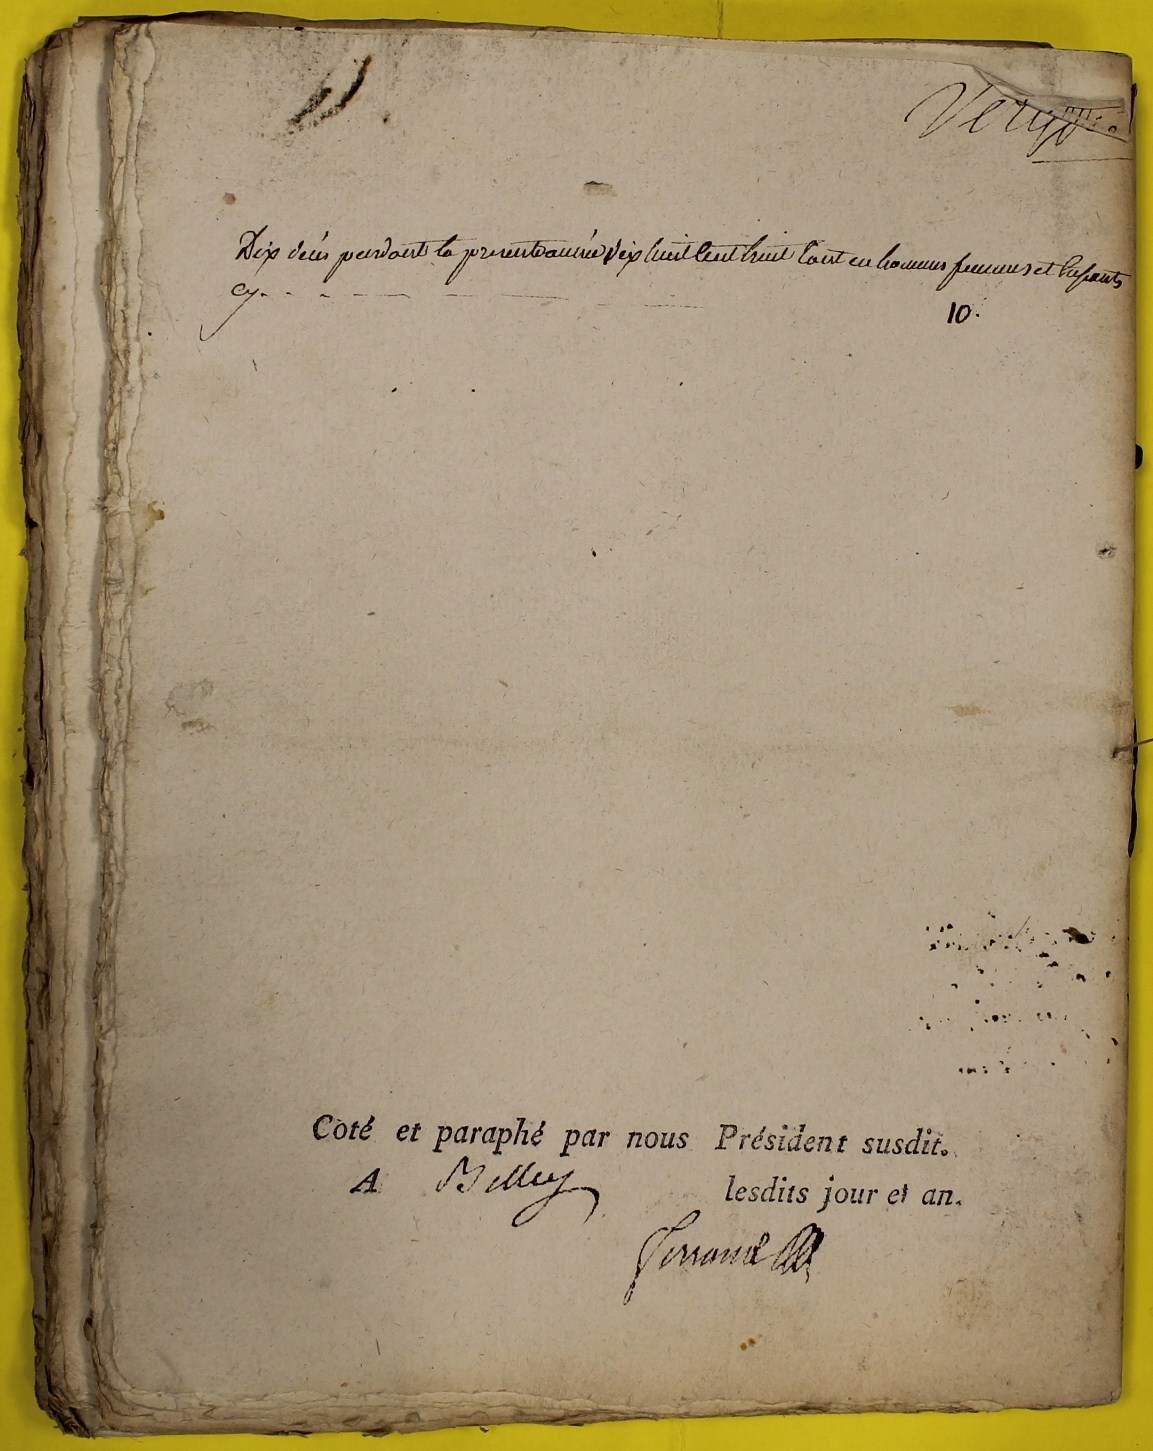 Dix décès pendant la presente année dix huit cent huit tant en hommes femmes et Enfants
cy - - - - - - - - 10.
Coté et paraphé par nous Président susdit.
A Belley lesdits jour et an.